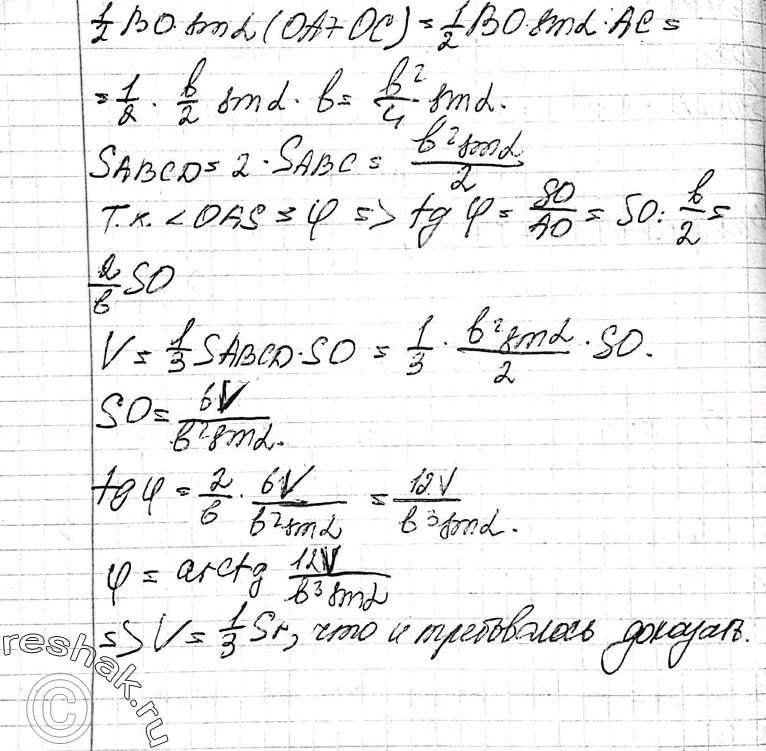 1/2 BO·sinα(OA+OC) = 1/2 BO·sinα·AC =
= 1/2 · b/2 sinα · b = b²/4 · sinα.
SABCD = 2·SABC = b² sinα/2
Т.к. <OAS = φ => tg φ = SO/AO = SO : b/2 =
2/b SO
V = 1/3 SABCD·SO = 1/3 · b² sinα/2 · SO.
SO = 6V/b² sinα.
tg φ = 2/b · 6V/b² sinα = 12V/b³ sinα.
φ = arctg 12V/b³ sinα
=> V = 1/3 Sr, что и требовалось доказать.
reshak.ru
©